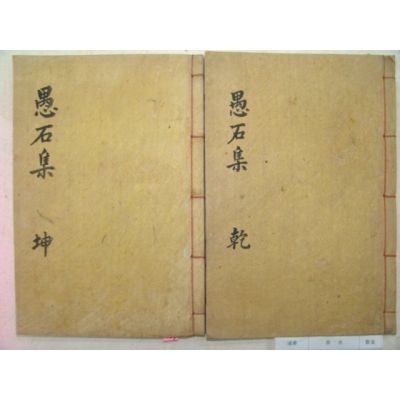 愚石集 乾
愚石集 坤